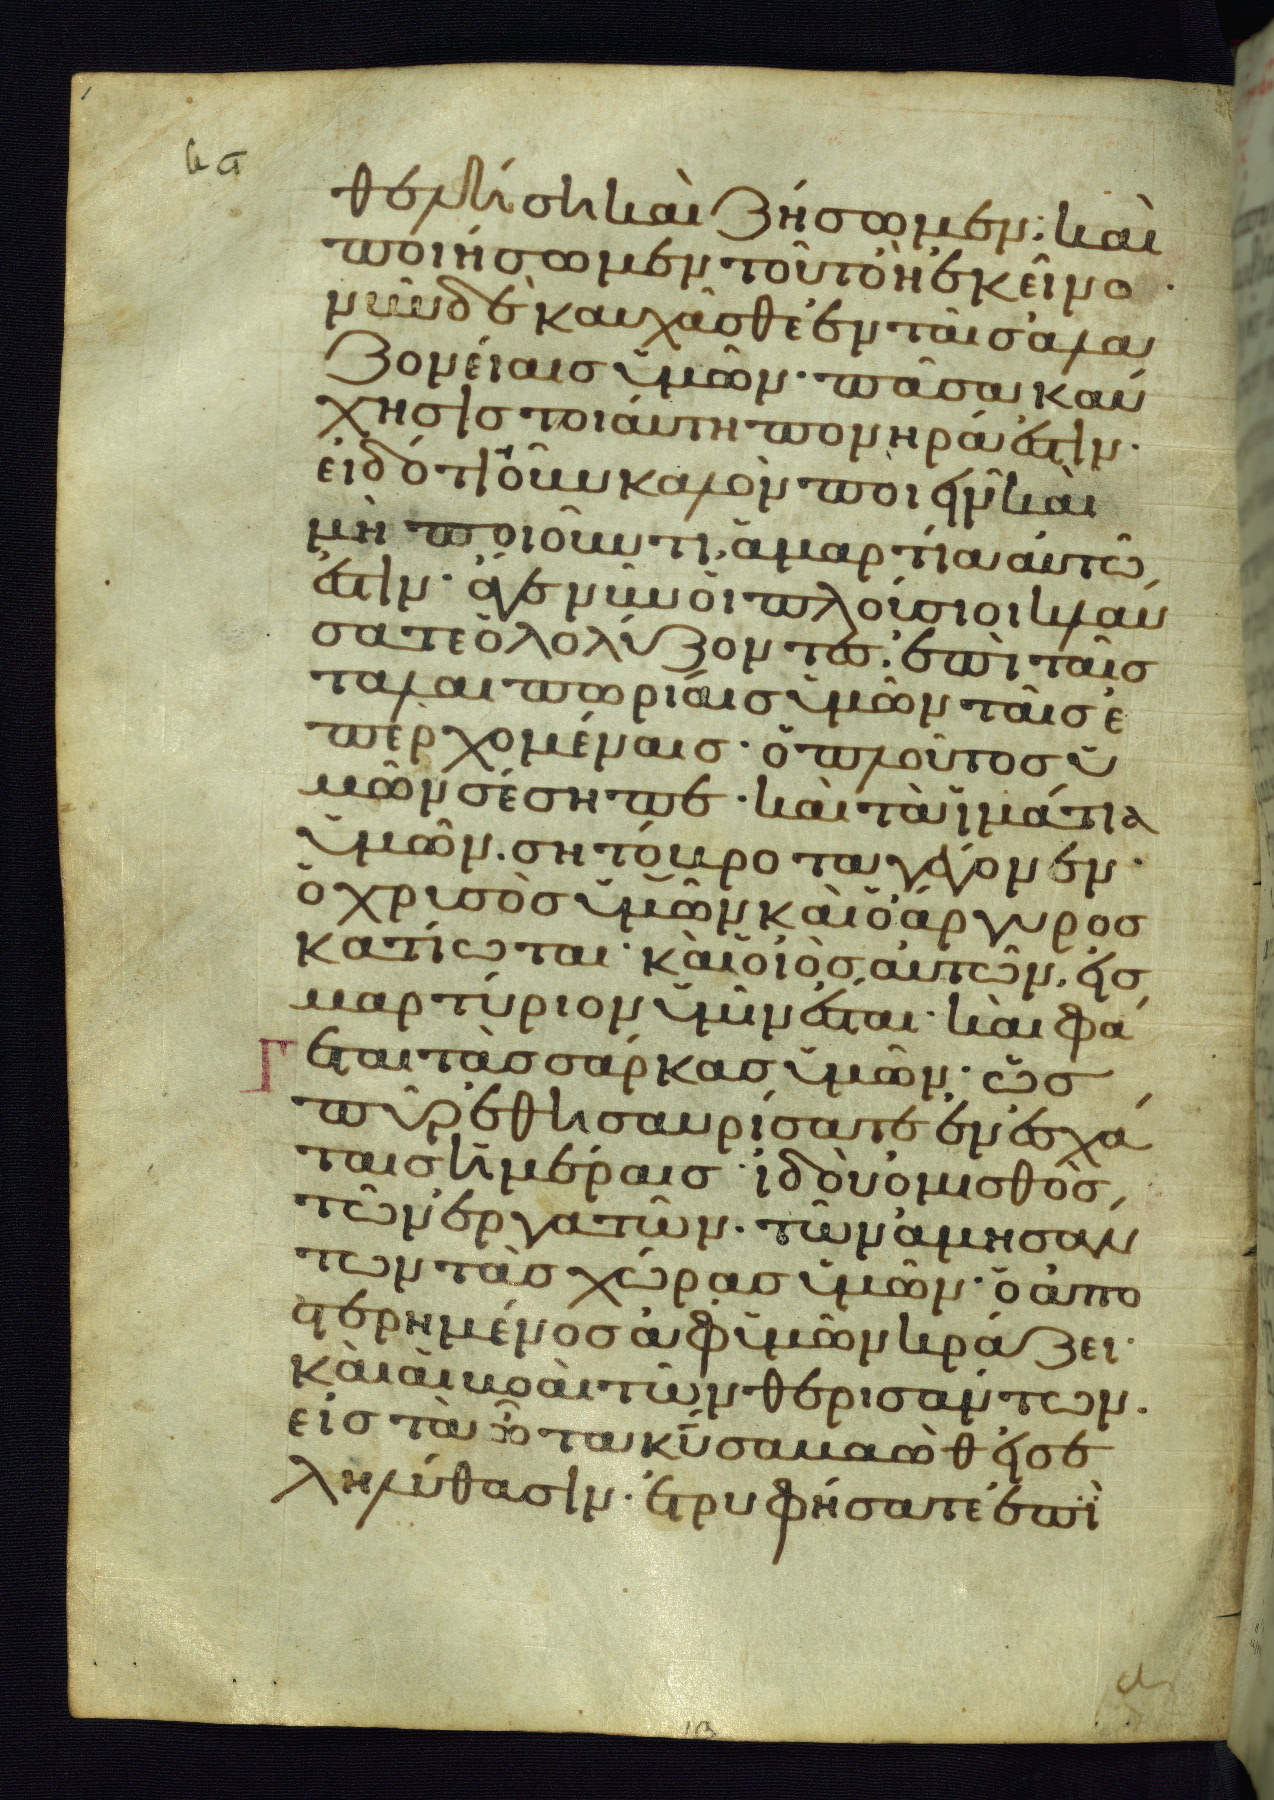 θελήσει καὶ ζήσωμεν· καὶ
ποιήσωμεν τοῦτο ἢ ἐκεῖνο·
νῦν δὲ καυχᾶσθε ἐν ταῖς ἀλα
ζονείαις ὑμῶν· πᾶσα καύ
χησις τοιάυτη πονηρά ἐστιν·
εἰδότι οὖν καλὸν ποιεῖν καὶ
μὴ ποιοῦντι, ἁμαρτία αὐτῶ
ἐστιν· ἄγε νῦν οἱ πλούσιοι κλαύ
σατε ὀλολύζοντες ἐπὶ ταῖς
ταλαιπωρίαις ὑμῶν ταῖς ἐ
περχομέναις· ὁ πλοῦτος ὑ
μῶν σέσηπε· καὶ τὰ ἱμάτια
ὑμῶν· σητόβροτα γέγονεν·
ὁ χρυσὸς ὑμῶν καὶ ὁ ἄργυρος
κατίωται· καὶ ὁ ἰὸς αὐτῶν, εἰς
μαρτύριον ὑμῖν ἔσται· καὶ φά
γεται τὰς σάρκας ὑμῶν· ὡς
πῦρ ἐθησαυρίσατε ἐν ἐσχά
ταις ἡμέραις· ἰδοὺ ὁ μισθὸς
τῶν ἐργατῶν· τῶν ἀμησάν
των τὰς χώρας ὑμῶν· ὁ ἀπο
στερημένος ἀφ' ὑμῶν κράζει·
καὶ αἱ βοαὶ τῶν θερισάντων·
εἰς τὰ ὦτα κυ σαβαὼθ εἰσε
ληλύθασιν· ἐτρυφήσατε ἐπὶ